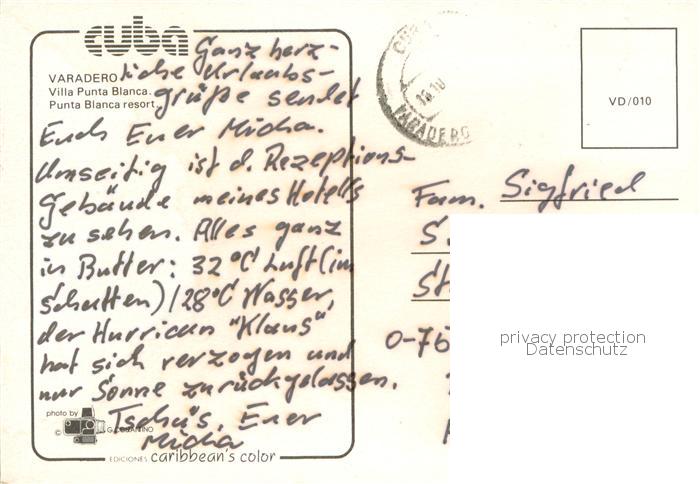 cuba
VARADERO
Villa Punta Blanca.
Punta Blanca resort.
Ganz herz-
liche Urlaubs-
grüße sendet
Euch Euer Micha.
Umseitig ist d. Rezeptions-
Gebäude meines Hotells
zu sehen. Alles ganz
in Butter: 32°C Luft (im
Schatten) / 28°C Wasser,
der Hurrican "Klaus"
hat sich verzogen und
nur Sonne zurückgelassen.
Tschüs, Euer
Micha
photo by
©
EDICIONES caribbean's color
VARADERO
VD/010
Fam. Sigfried
S.
St
O-76
privacy protection
Datenschutz